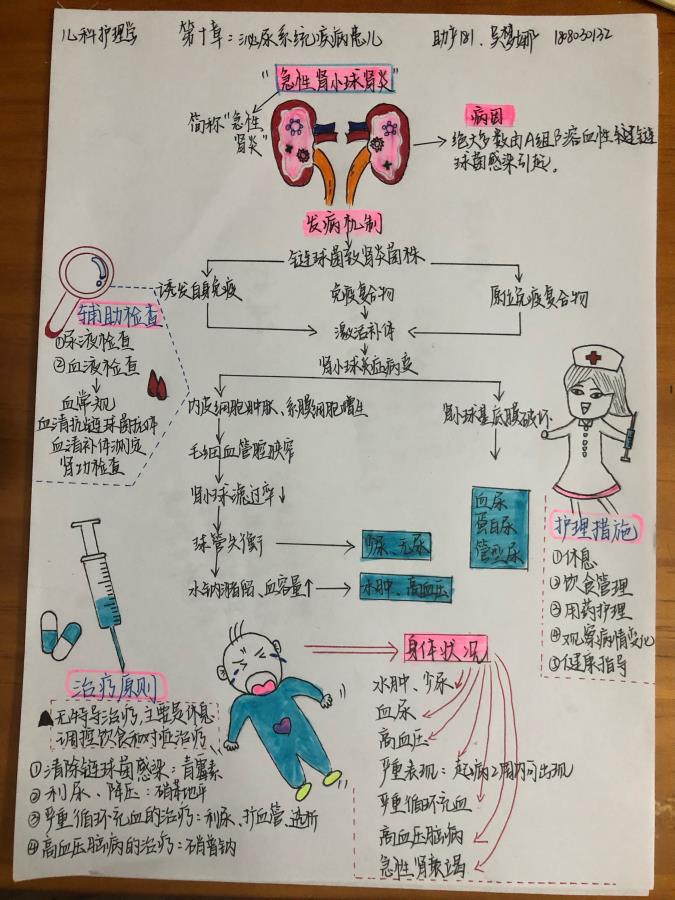 儿科护理学 第十章：泌尿系统疾病患儿 助产181. 吴梦娜 1808030132
"急性肾小球肾炎"
简称"急性
肾炎"
病因
绝大多数由A组β溶血性链
球菌感染引起。
发病机制
链球菌致肾炎菌株
诱发自身免疫 免疫复合物 原位免疫复合物
激活补体
肾小球炎症病变
内皮细胞肿胀、系膜细胞增生 肾小球基底膜破坏
毛细血管腔狭窄
肾小球滤过率↓
球管失衡
少尿、无尿
水钠潴留、血容量↑
水肿、高血压
血尿
蛋白尿
管型尿
辅助检查
①尿液检查
②血液检查
血常规
血清抗链球菌抗体
血清补体测定
肾功检查
护理措施
①休息
②饮食管理
③用药护理
④观察病情变化
⑤健康指导
治疗原则
无特异治疗，主要是休息
调整饮食和对症治疗
①清除链球菌感染：青霉素
②利尿、降压：硝苯地平
③严重循环充血的治疗：利尿、扩血管、透析
④高血压脑病的治疗：硝普钠
身体状况
水肿、少尿
血尿
高血压
严重表现：起病2周内可出现
严重循环充血
高血压脑病
急性肾衰竭